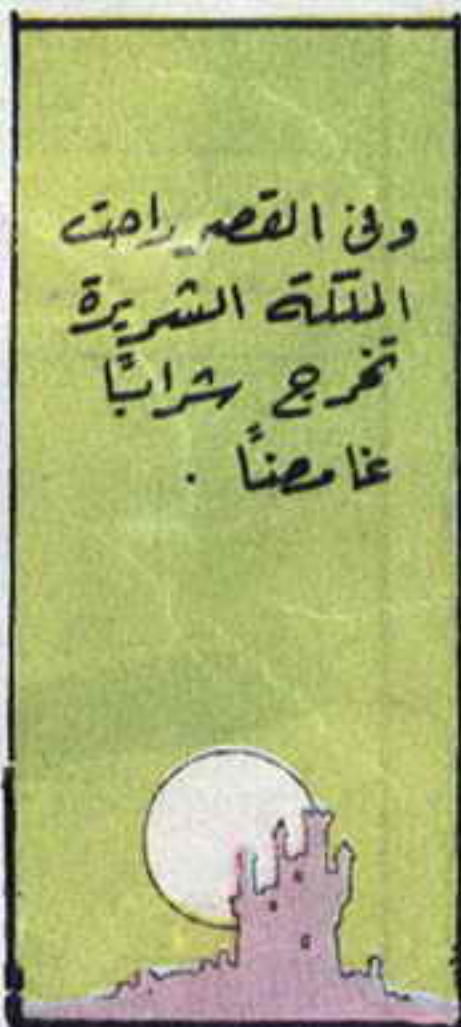 وفي القصر راحت
الملكة الشريرة
تخرج شرابًا
غامضًا .